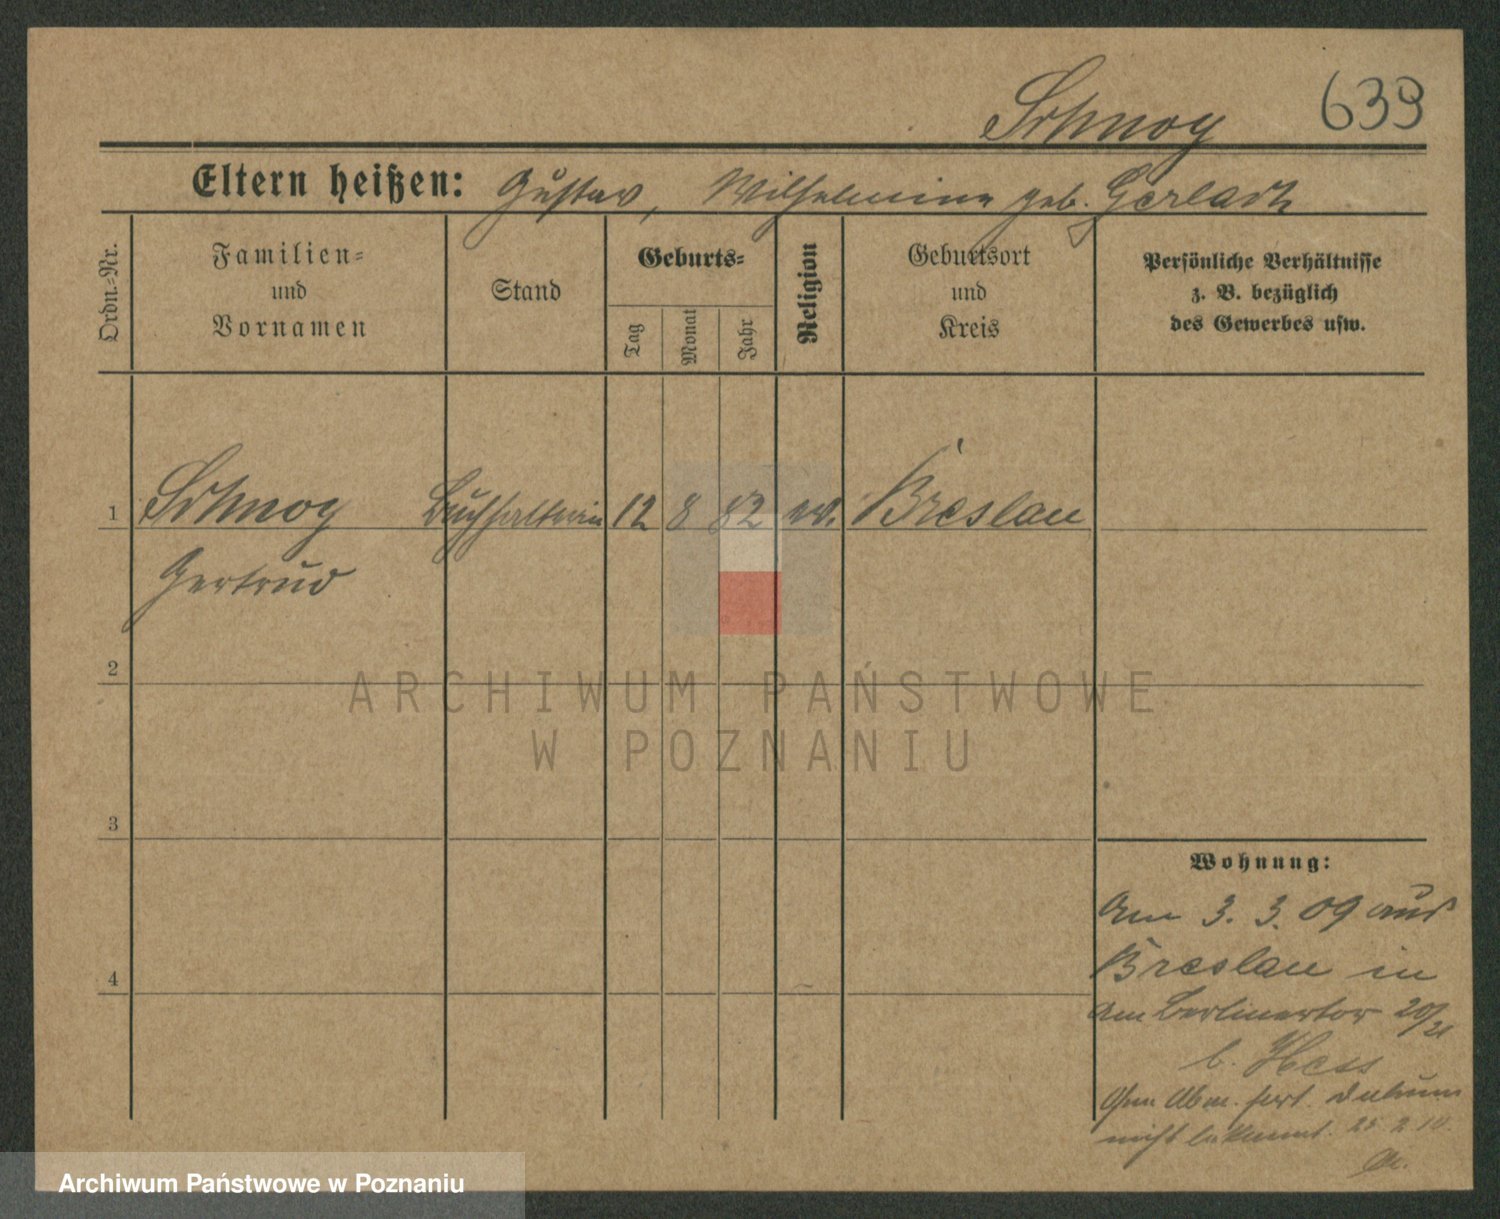 Schnog 639
Eltern heißen: Gustav, Wilhelmine geb. Gerlach
Ordn.-Nr.
Familien-
und
Vornamen
Stand
Geburts-
Tag
Monat
Jahr
Religion
Geburtsort
und
Kreis
Persönliche Verhältnisse
z. B. bezüglich
des Gewerbes usw.
1 Schnog Buchhalterin 12 8 82 ev. Breslau
Gertrud
2
3
4
Wohnung:
Am 3. 3. 09 aus
Breslau in
Am Berlinertor 20/21
b. Hess
Ohne Abm. fort. Datum
nicht bekannt. 25. 2. 10.
ARCHIWUM PAŃSTWOWE
W POZNANIU
Archiwum Państwowe w Poznaniu